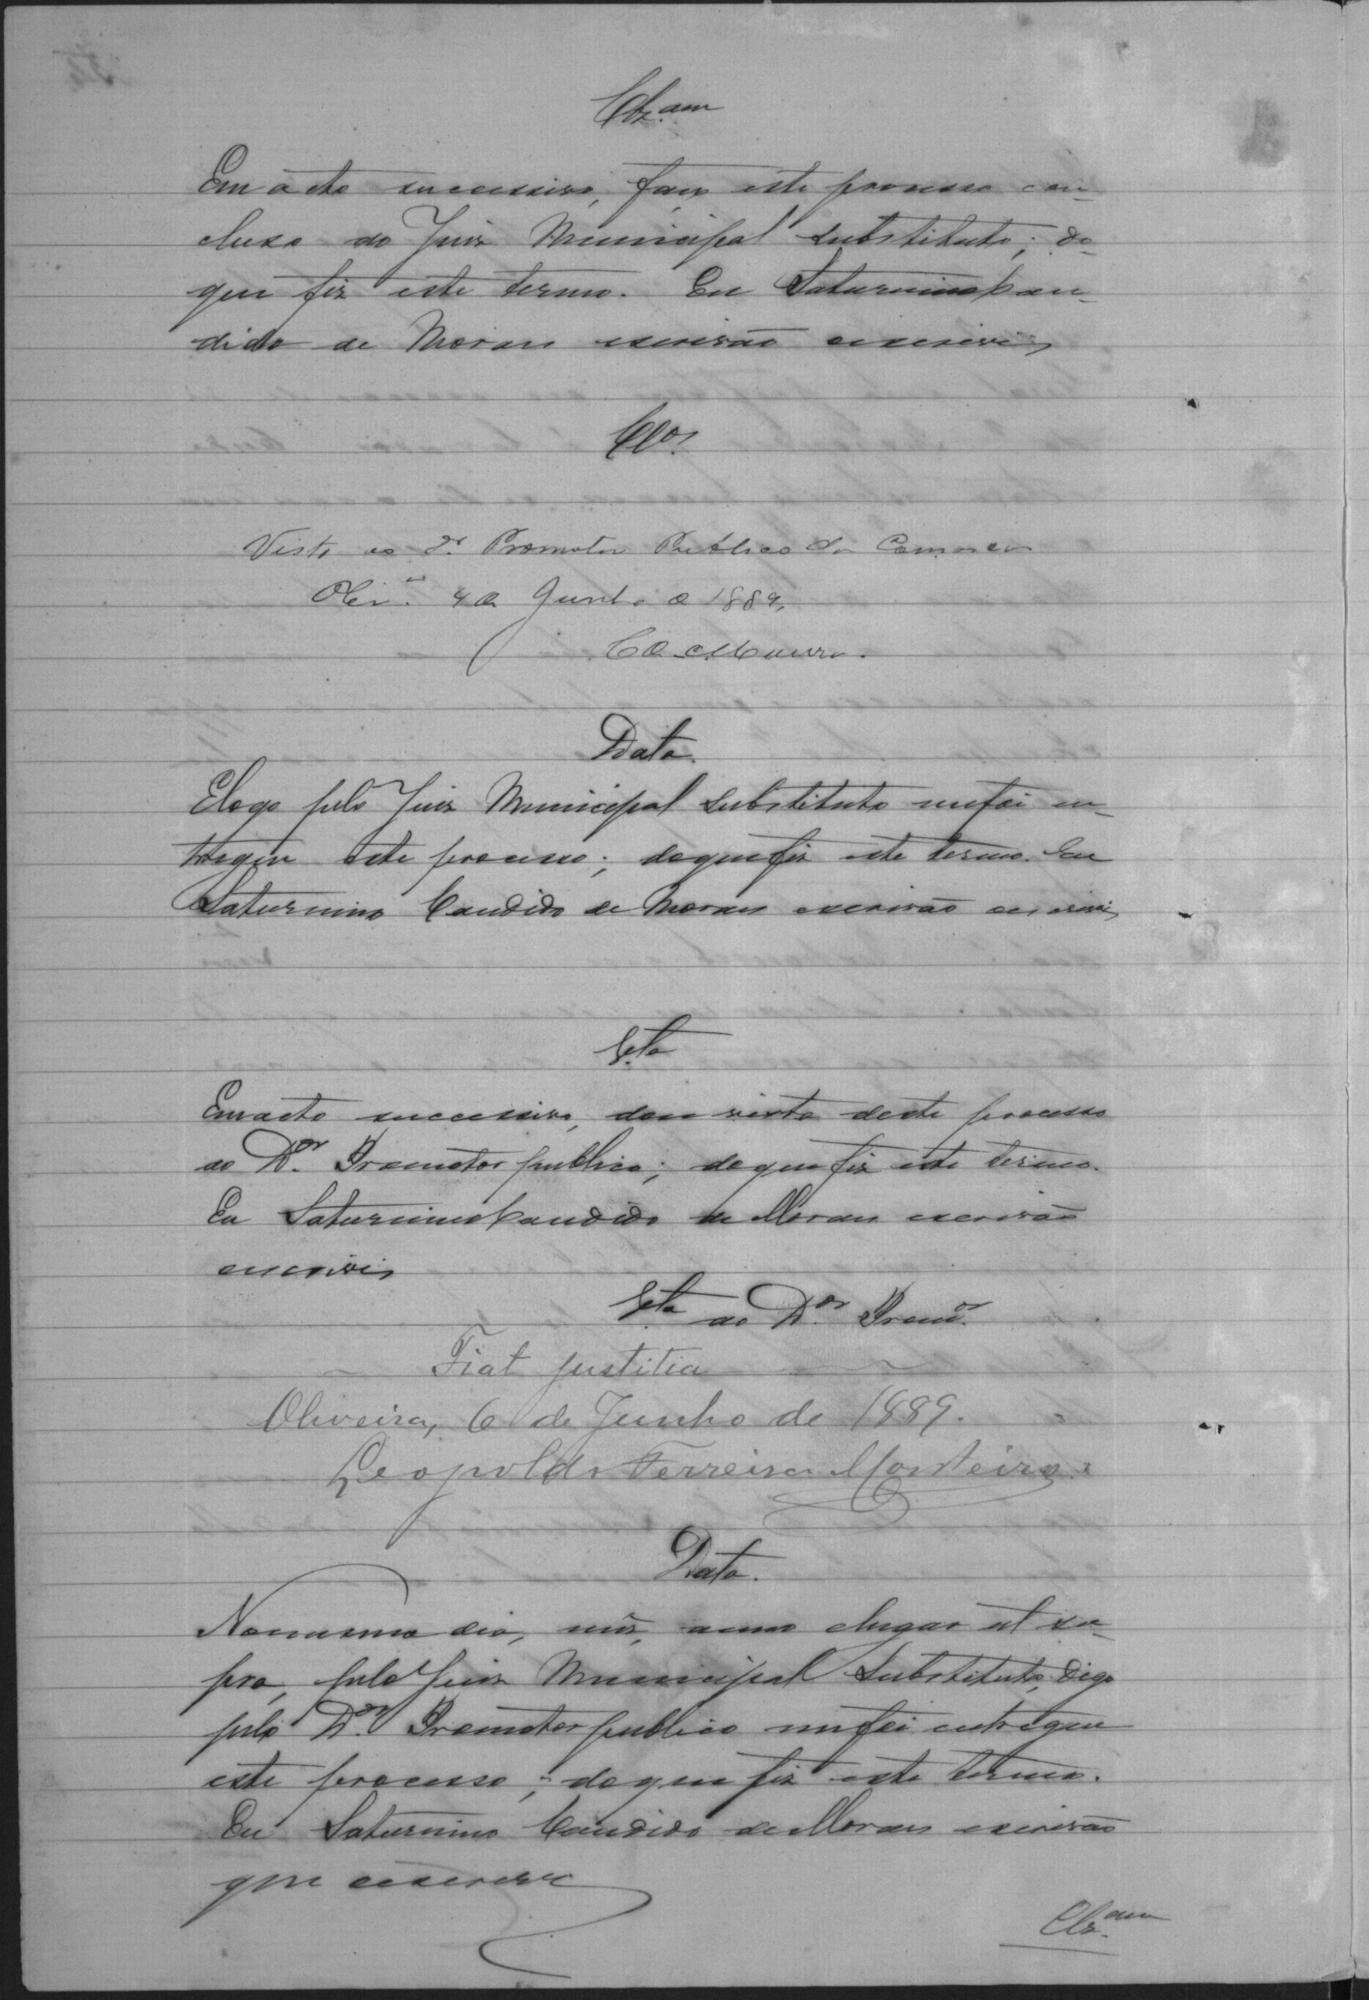 Clz.am
Em acto successivo, faço este processo con-
cluso ao Juiz Municipal substituto; do
que fiz este termo. Eu Saturnino Can-
dido de Moraes escrivão escrevi
Clos.
Vista ao Dr. Promotor Publico da Comarca
Olivª. 4 de Junho de 1889.
Data.
E logo pelo Juiz Municipal Substituto me foi en-
tregue este processo; do que fiz este termo. Eu
Saturnino Candido de Moraes escrivão escrevi
V.ta
Em acto successivo, dou vista deste processo
ao Dor. Promotor publico; do que fiz este termo.
Eu Saturnino Candido de Moraes escrivão
escrevi
V.ta ao Dor. Promor.
Fiat justitia
Oliveira, 6 de Junho de 1889.
Leopoldo Ferreira Monteiro.
Data.
No mesmo dia, mês, anno e lugar ut su-
pra, pelo Juiz Municipal Substituto, digo
pelo Dor. Promotor publico me foi entregue
este processo; do que fiz este termo.
Eu Saturnino Candido de Moraes escrivão
que escrevi
Clz.am